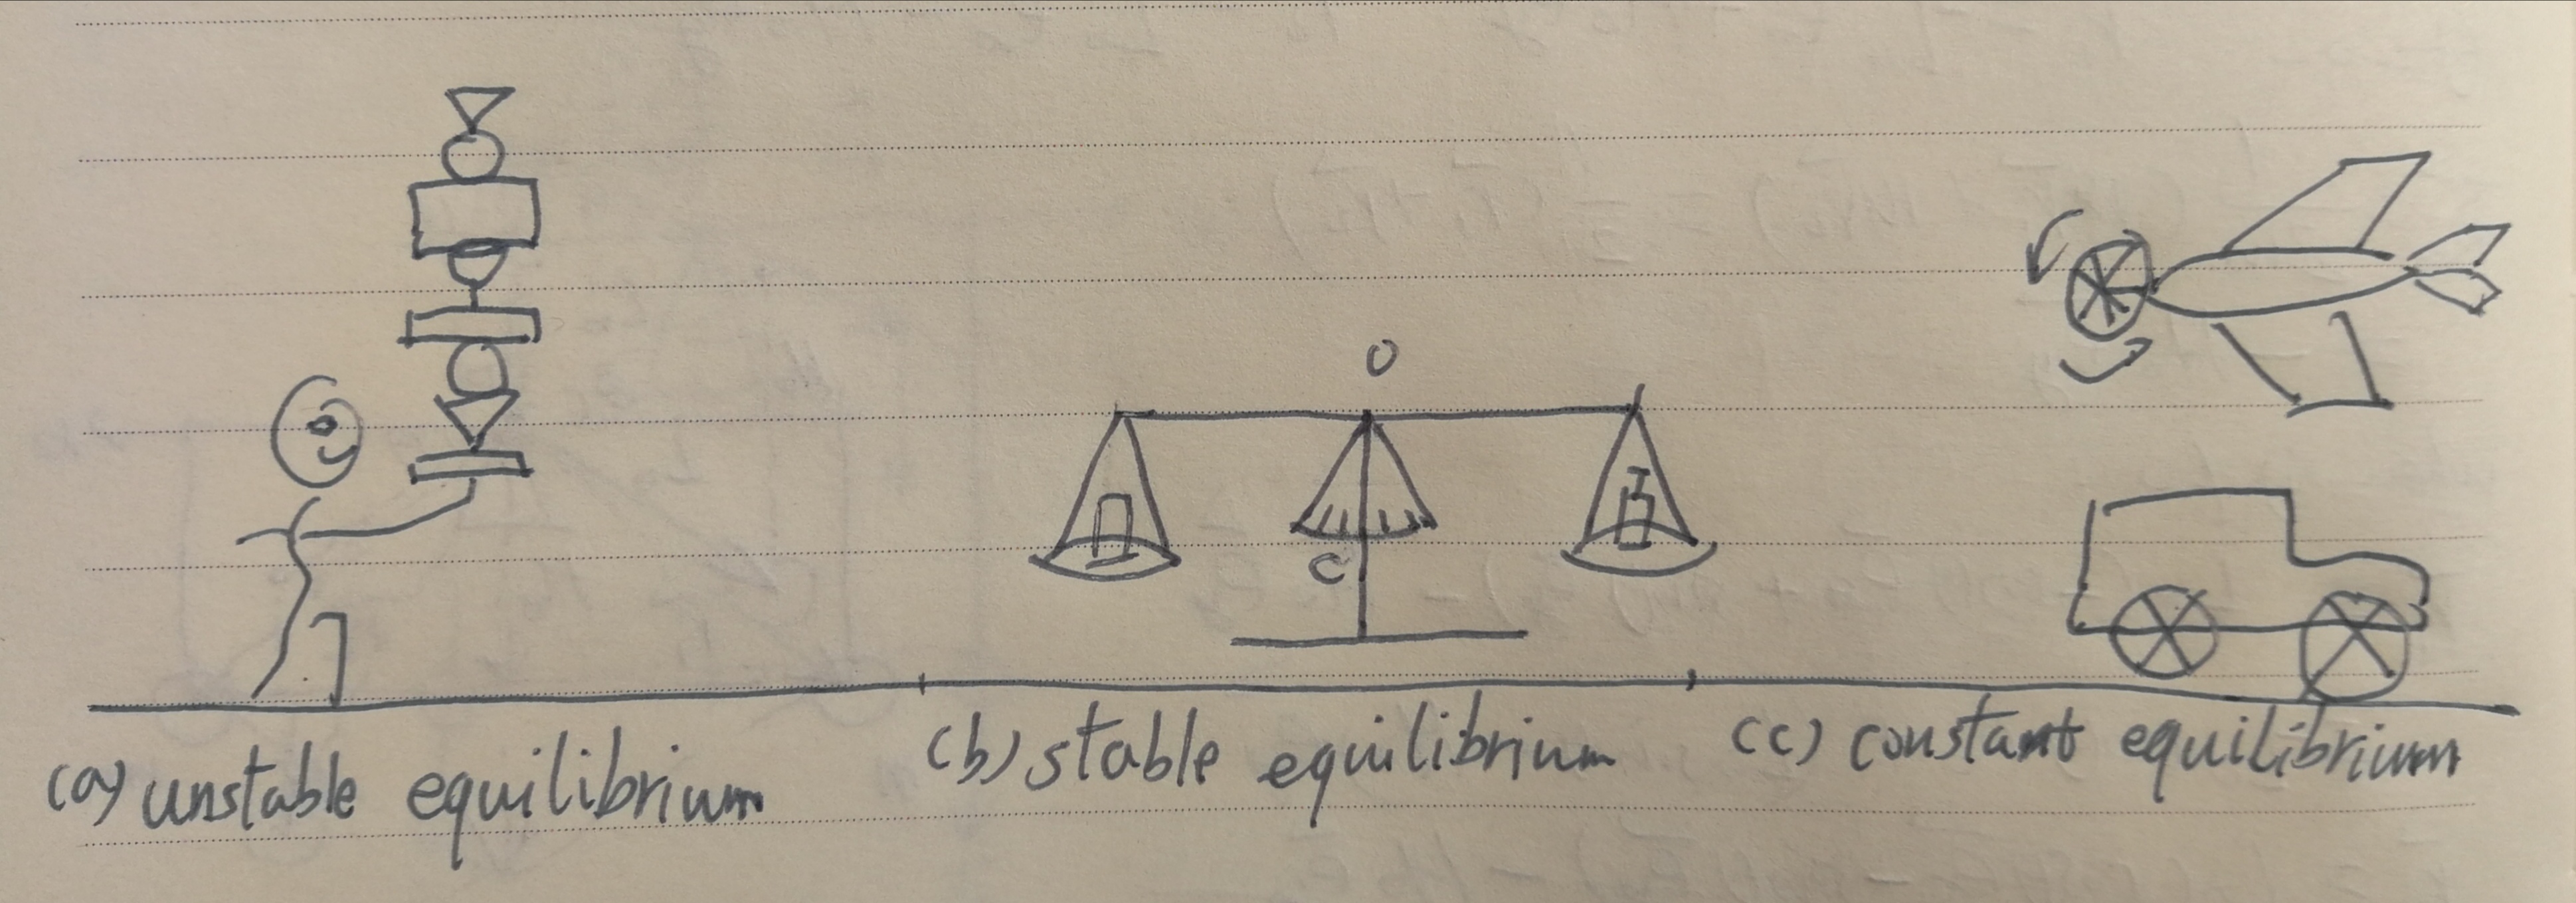 O
C
(a) unstable equilibrium
(b) stable equilibrium
(c) constant equilibrium